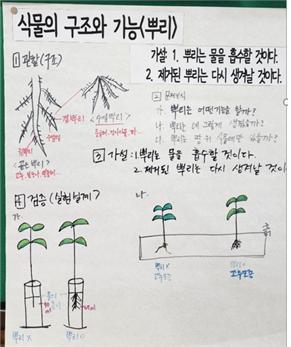 식물의 구조와 기능(뿌리)
가설 1. 뿌리는 물을 흡수할 것이다.
2. 제거된 뿌리는 다시 생겨날 것이다.
1 관찰(구조)
곁뿌리
<수염뿌리>
원뿌리
<곧은뿌리>
2 문제인식
가. 뿌리는 어떤 기능을 할까?
나. 뿌리는 왜 그렇게 생겼을까?
다. 뿌리는 땅 위 식물에만 있을까?
3 가설 : 1. 뿌리는 물을 흡수할 것이다.
2. 제거된 뿌리는 다시 생겨날 것이
4 검증 (실험설계)
가.
나.
뿌리X
뿌리O
뿌리X
뿌리O